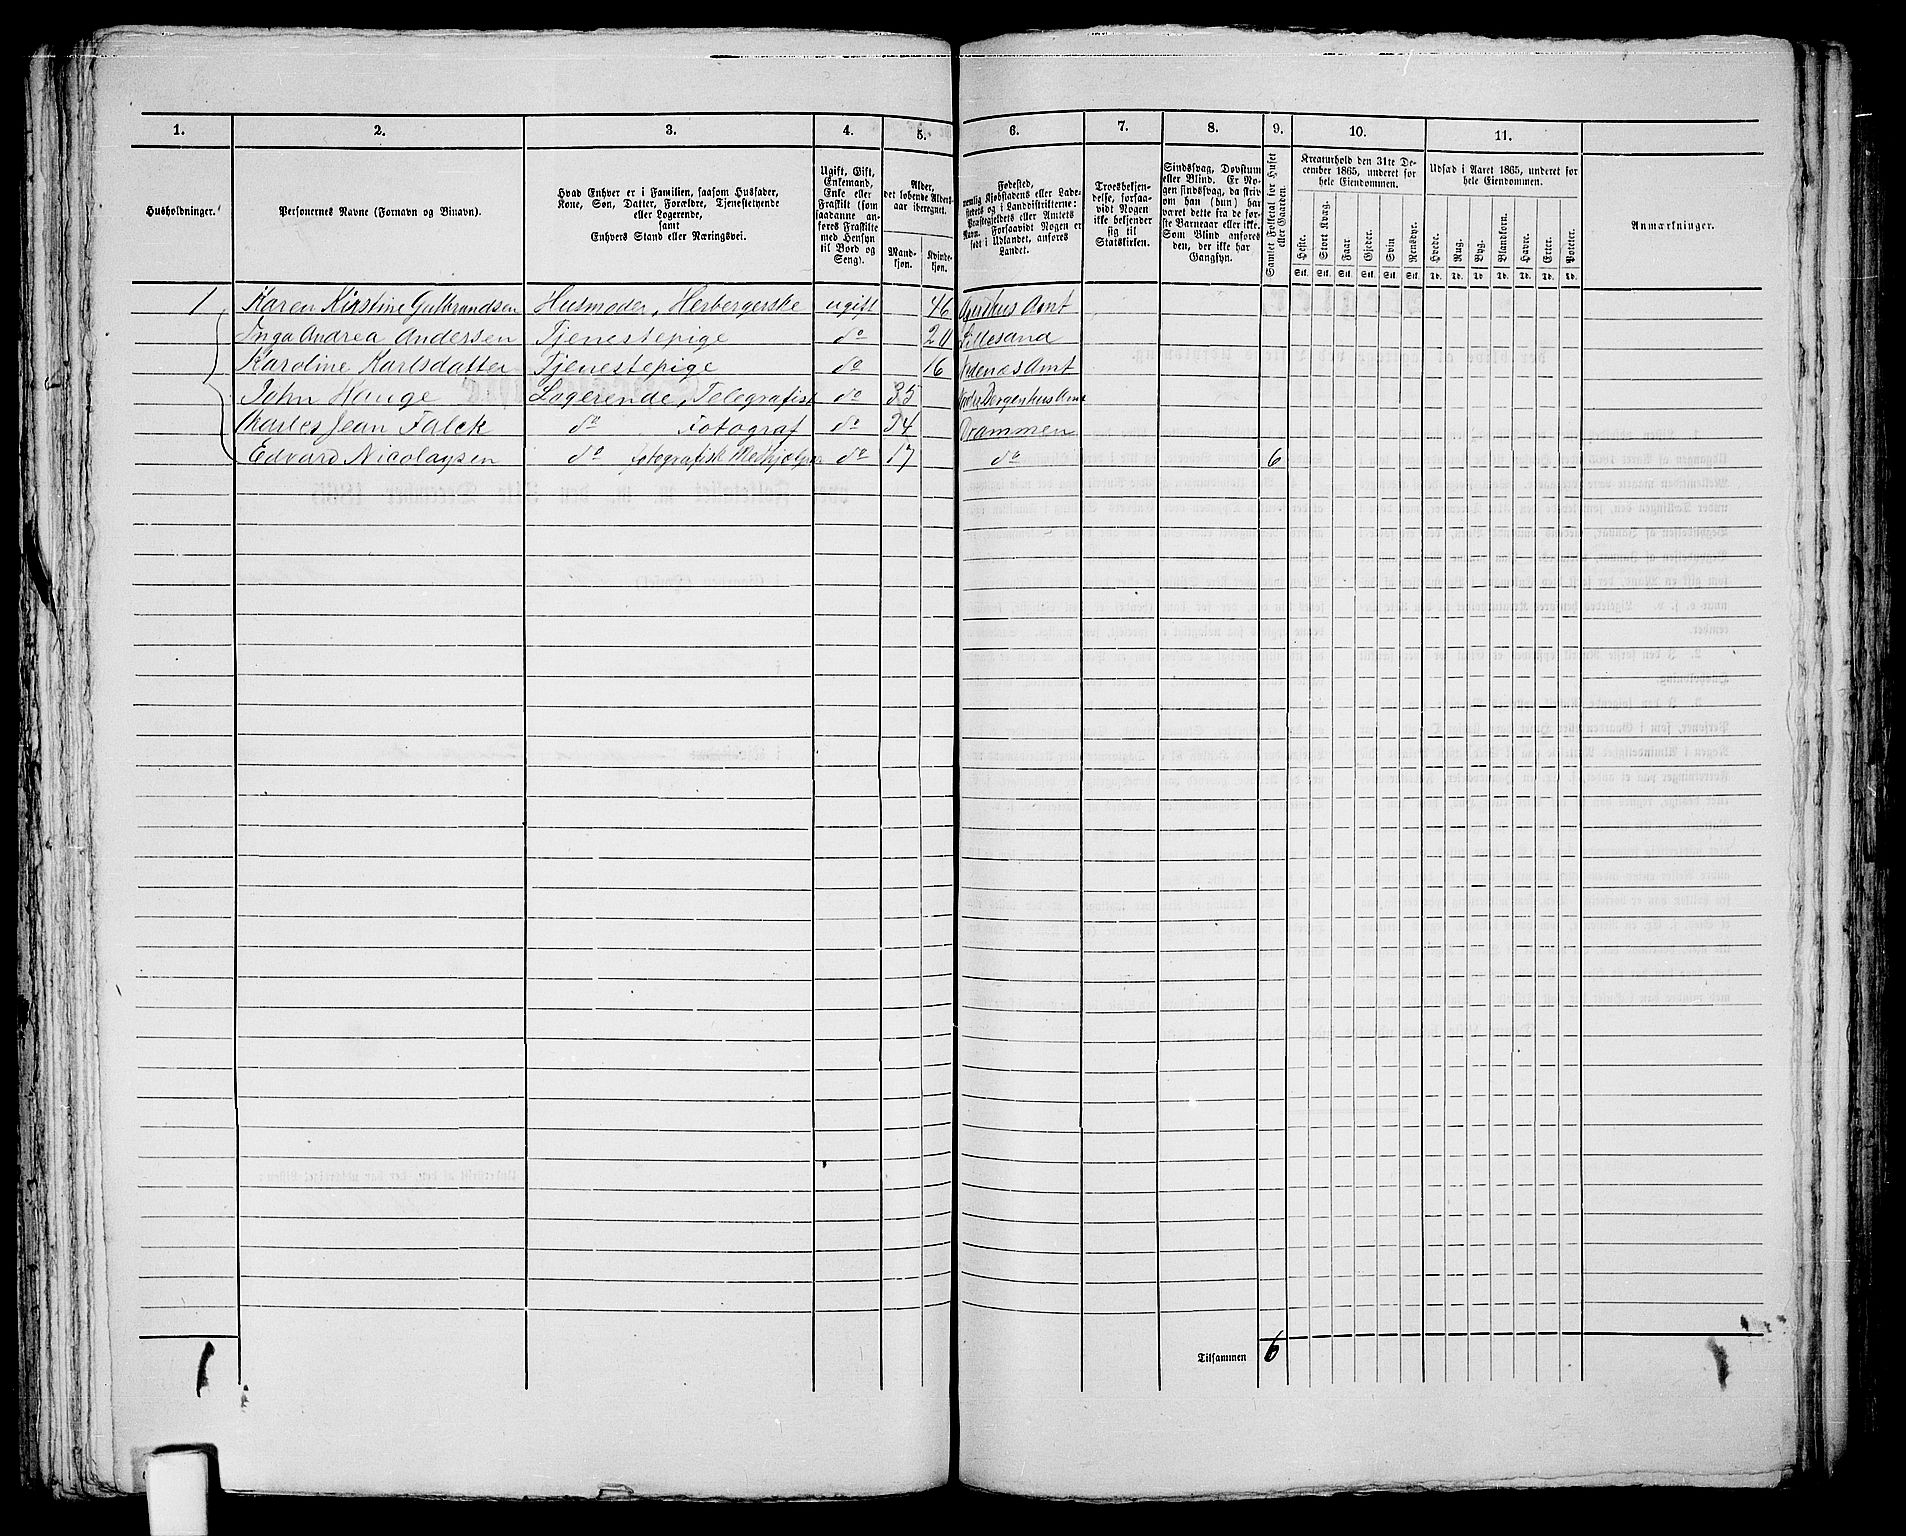 1. 2. 3. 4. 5. 6. 7. 8. 9. 10. 11.
Husholdninger.
Personernes Navne (Fornavn og Binavn).
Hvad Enhver er i Familien, saasom Husfader,
Kone, Søn, Datter, Forældre, Tjenestetyende
eller Logerende,
samt
Enhvers Stand eller Næringsvei.
Ugift, Gift,
Enkemand,
Enke eller
Fraskilt (som
saadanne an-
føres Fraskilte
med Hensyn
til Bord og
Seng).
Alder,
det løbende Alders-
aar iberegnet.
Mand-
kjøn.
Kvinde-
kjøn.
Fødested,
nemlig Kjøbstadens eller Lade-
stedets og i Landdistrikterne:
Præstegjeldets eller Amtets
Navn. Forsaavidt Nogen er
født i Udlandet, anføres
Landet.
Troesbekjen-
delse, forsaa-
vidt Nogen
ikke bekjender
sig til
Statskirken.
Sindssvag, Døvstum
eller Blind. Er No-
gen sindssvag, da skriv
om han (hun) har
været dette fra de før-
ste Barneaar eller ikke.
Som Blind anføres
den, der ikke har
Gangsyn.
Samlet Folketal for Huset
eller Gaarden.
Kreaturhold den 31te De-
cember 1865, underet for
hele Eiendommen.
Heste. Stort Kvæg. Faar. Gjeder. Svin Rensdyr.
Stk. Stk. Stk. Stk. Stk. Stk.
Udsæd i Aaret 1865, underet for
hele Eiendommen.
Hvede. Rug. Byg. Blandkorn. Havre. Erter. Poteter.
Td. Td. Td. Td. Td. Td. Td.
Anmærkninger.
1 Karen Kirstine Gulbrandsen Husmoder, Herbergerske ugift 46 Agershus Amt
Inga Andrea Andersen Tjenestepige do 20 Lillesand
Karoline Karlsdatter Tjenestepige do 16 Nedenæs Amt
John Hauge Logerende, Telegrafist do 35 Bergenhus Amt
Charles Jean Falck do Fotograf do 34 Drammen
Edvard Nicolaysen do fotografisk Medhjælper do 17 do 6
1 Tilsammen 6